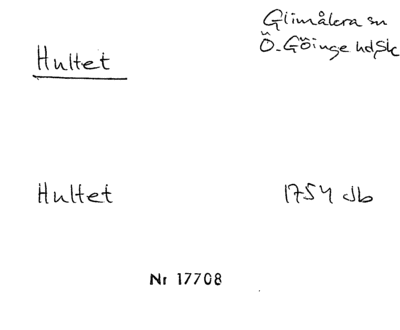 Glimåkra sn
Hultet
Ö. Göinge hd, Sk
Hultet 1754 db
Nr 17708